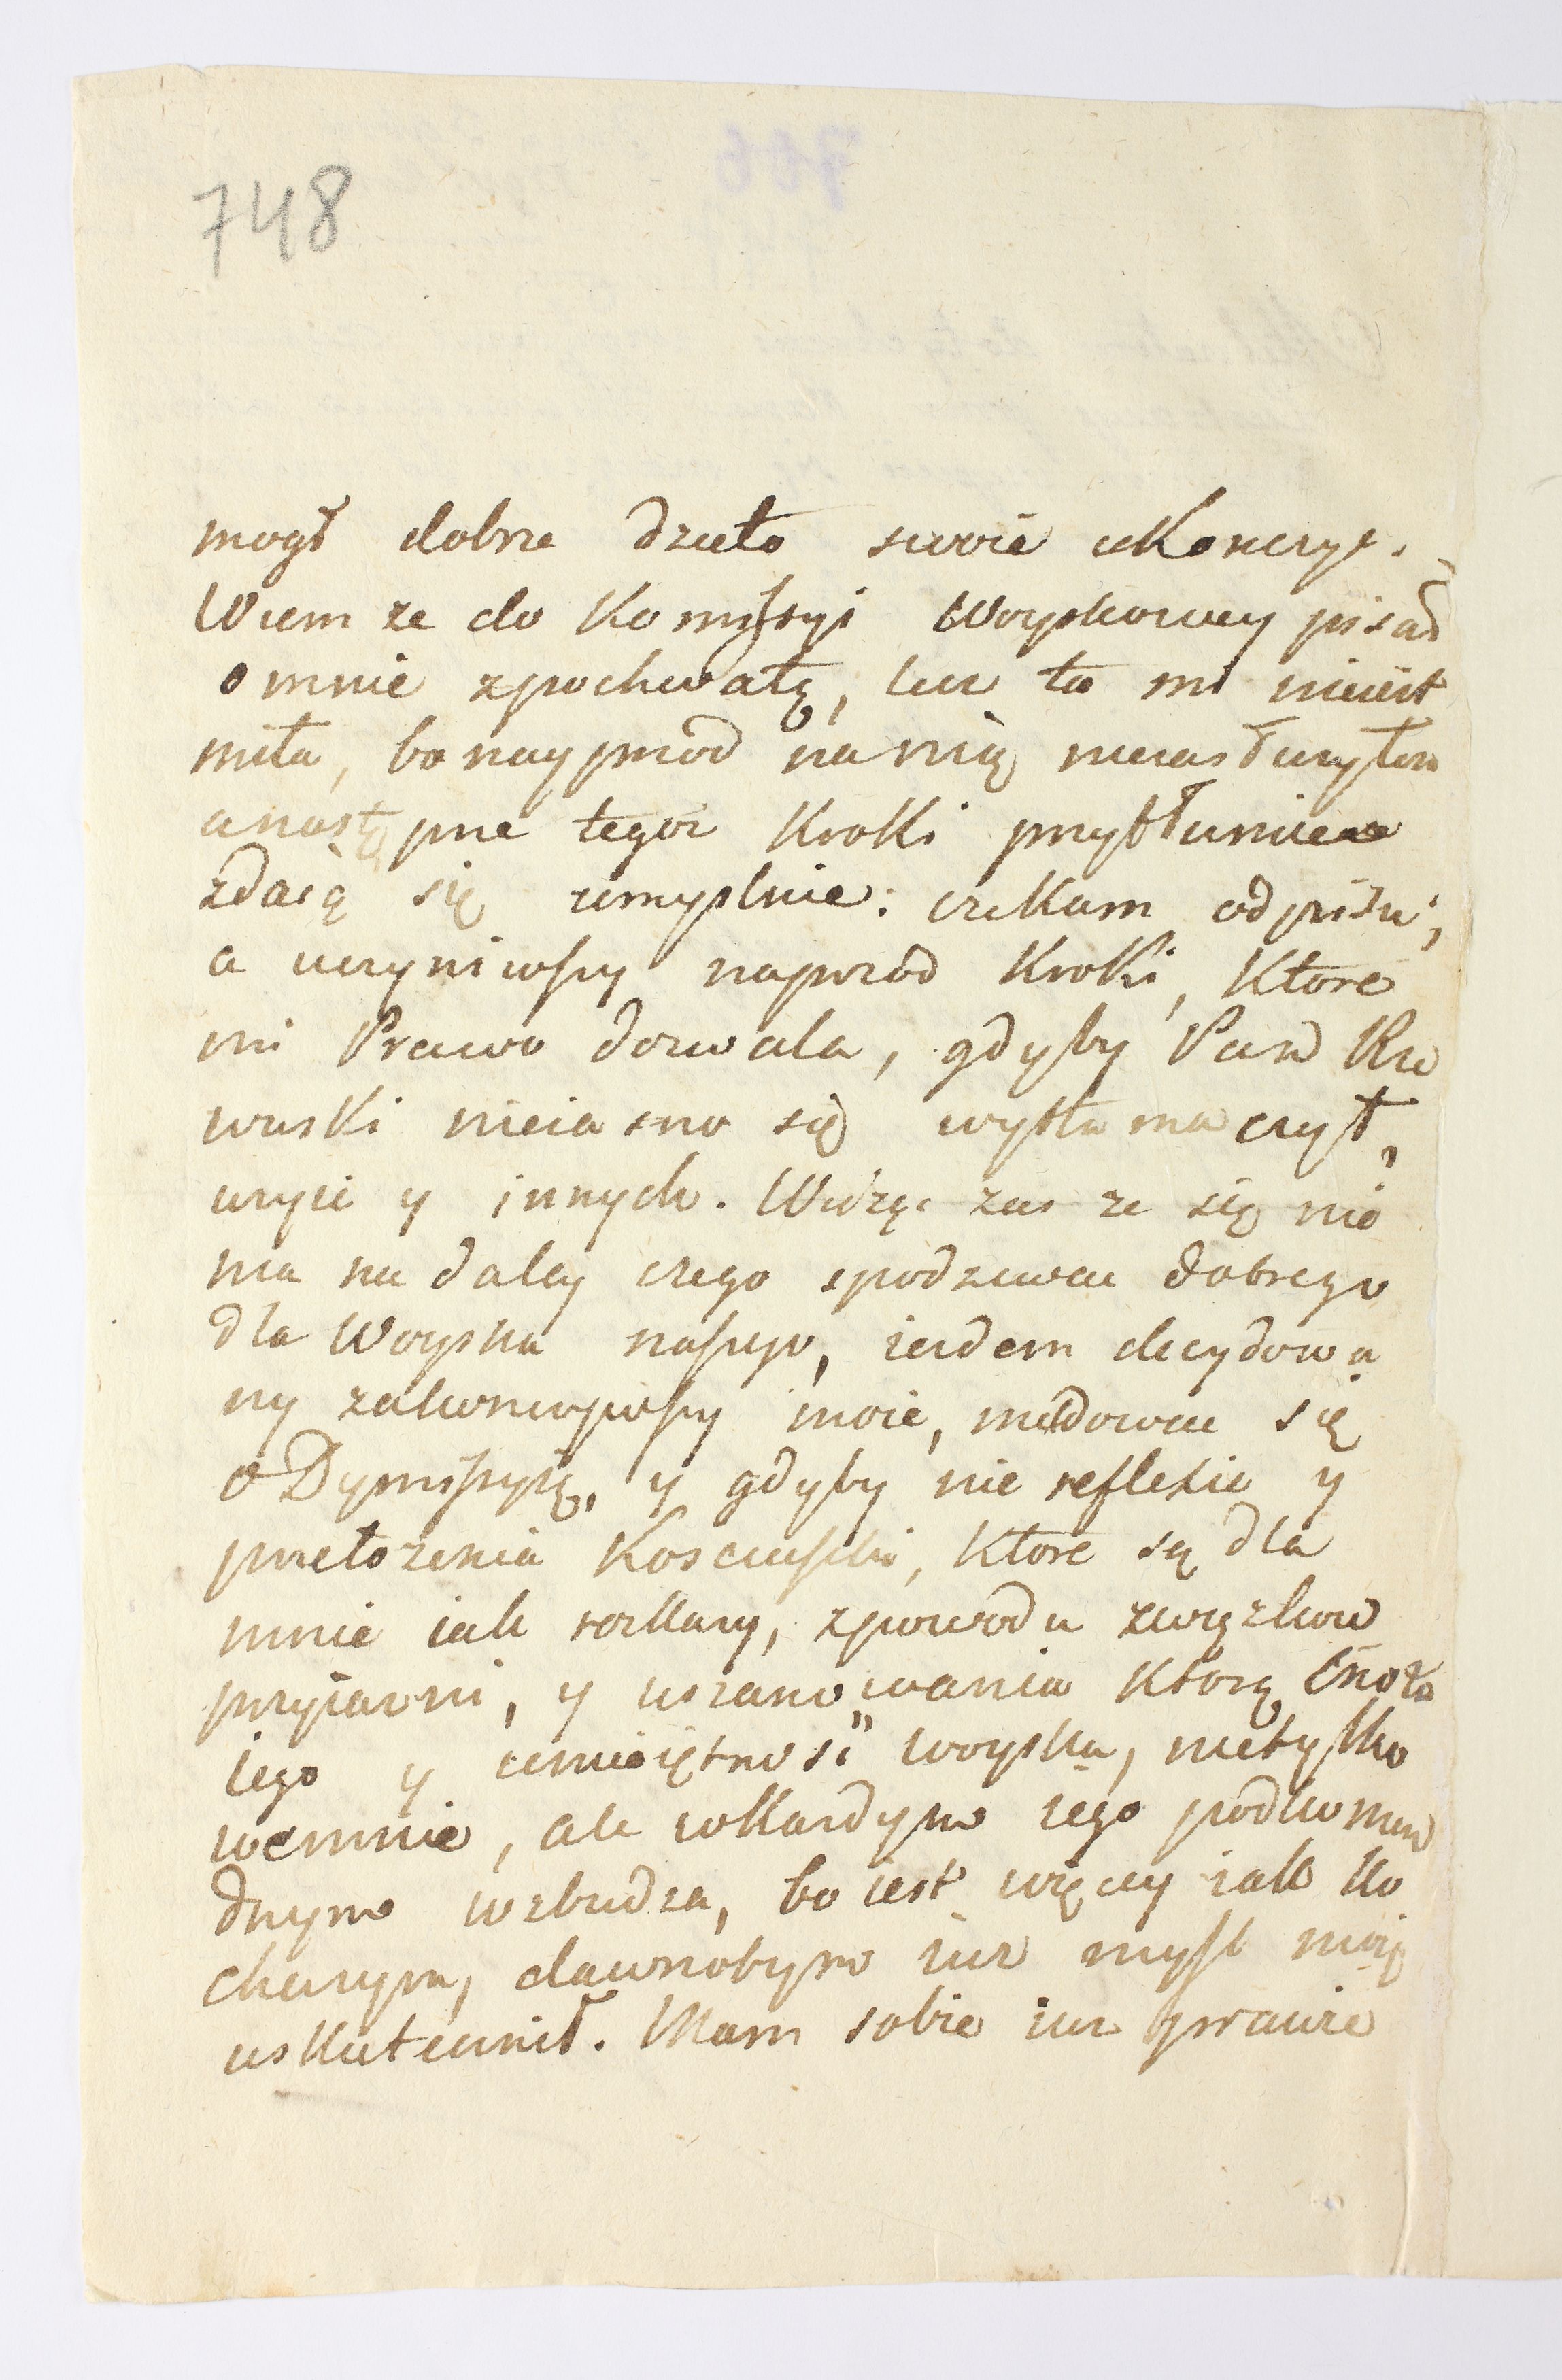 748
mogł dobre dzieło swoie ukonczyć.
Wiem ze do Komissyi Woyskowey pisał
o mnie zpochwałą, lecz ta mi nieiest
miła, bo nayprzod na nią niezasłuzyłem
anastępne tegoz Kroki przytłumione
zdaią się umyslnie: czekam odpisu;
a uczyniwszy naprzod Kroki, Ktore
mi Prawo dozwala, gdyby Pan Rze
wuski nieiasno się wytłumaczył,
uzyie y innych. Widząc zas ze się nie
ma na daley czego spodziewac dobrego
dla Woyska naszego, iezdem decydowa
ny zakonczywszy moie, meldowac się
o Dymissyią, y gdyby nie reflexie y
przełozenia Kosciuszki, Ktore są dla
mnie iak rozkazy, zpowodu związkow
przyiazni, y uszanowania Ktorą Cnota
iego y umieiętnosć woyska, nietylko
wemnie, ale wKazdym iego podkomen
dnym wzbudza, bo iest więcey iak Ko
chanym, dawnobym iuz mysl moię
uskutecznił. Mam sobie iuz prawie